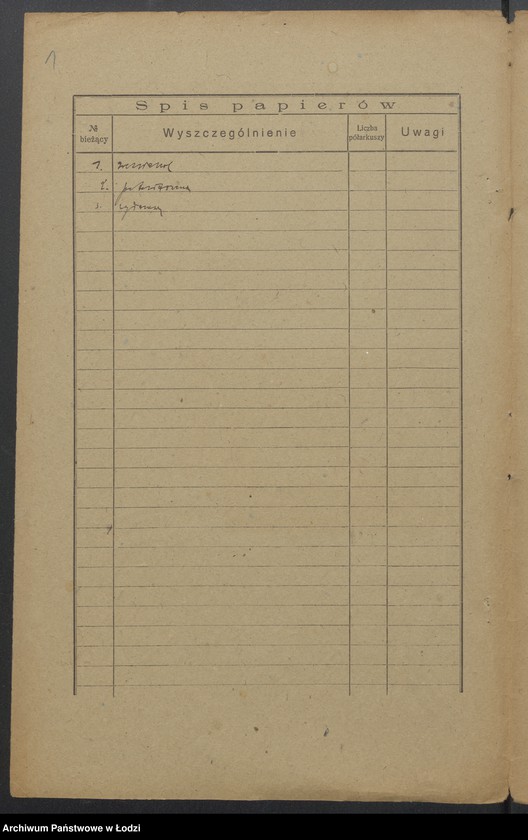 1
Spis papierów
№ bieżący
Wyszczególnienie
Liczba półarkuszy
Uwagi
1.
2.
Archiwum Państwowe w Łodzi